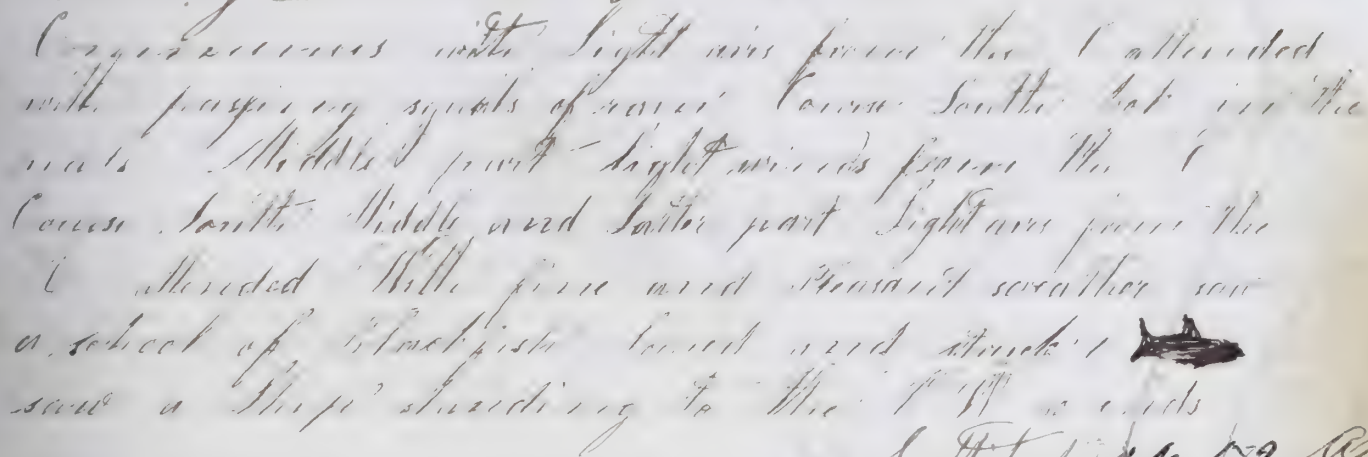 Commences with light airs from the E attended
with passing squals of rain Course South bot in the
nals Middle part light winds from the E
Course South Middle and Latter part light airs from the
E attended With fine and Pleasant weather saw
a school of Blackfish lowed and struck 1
saw a Ship standing to the S W so ends
Lat